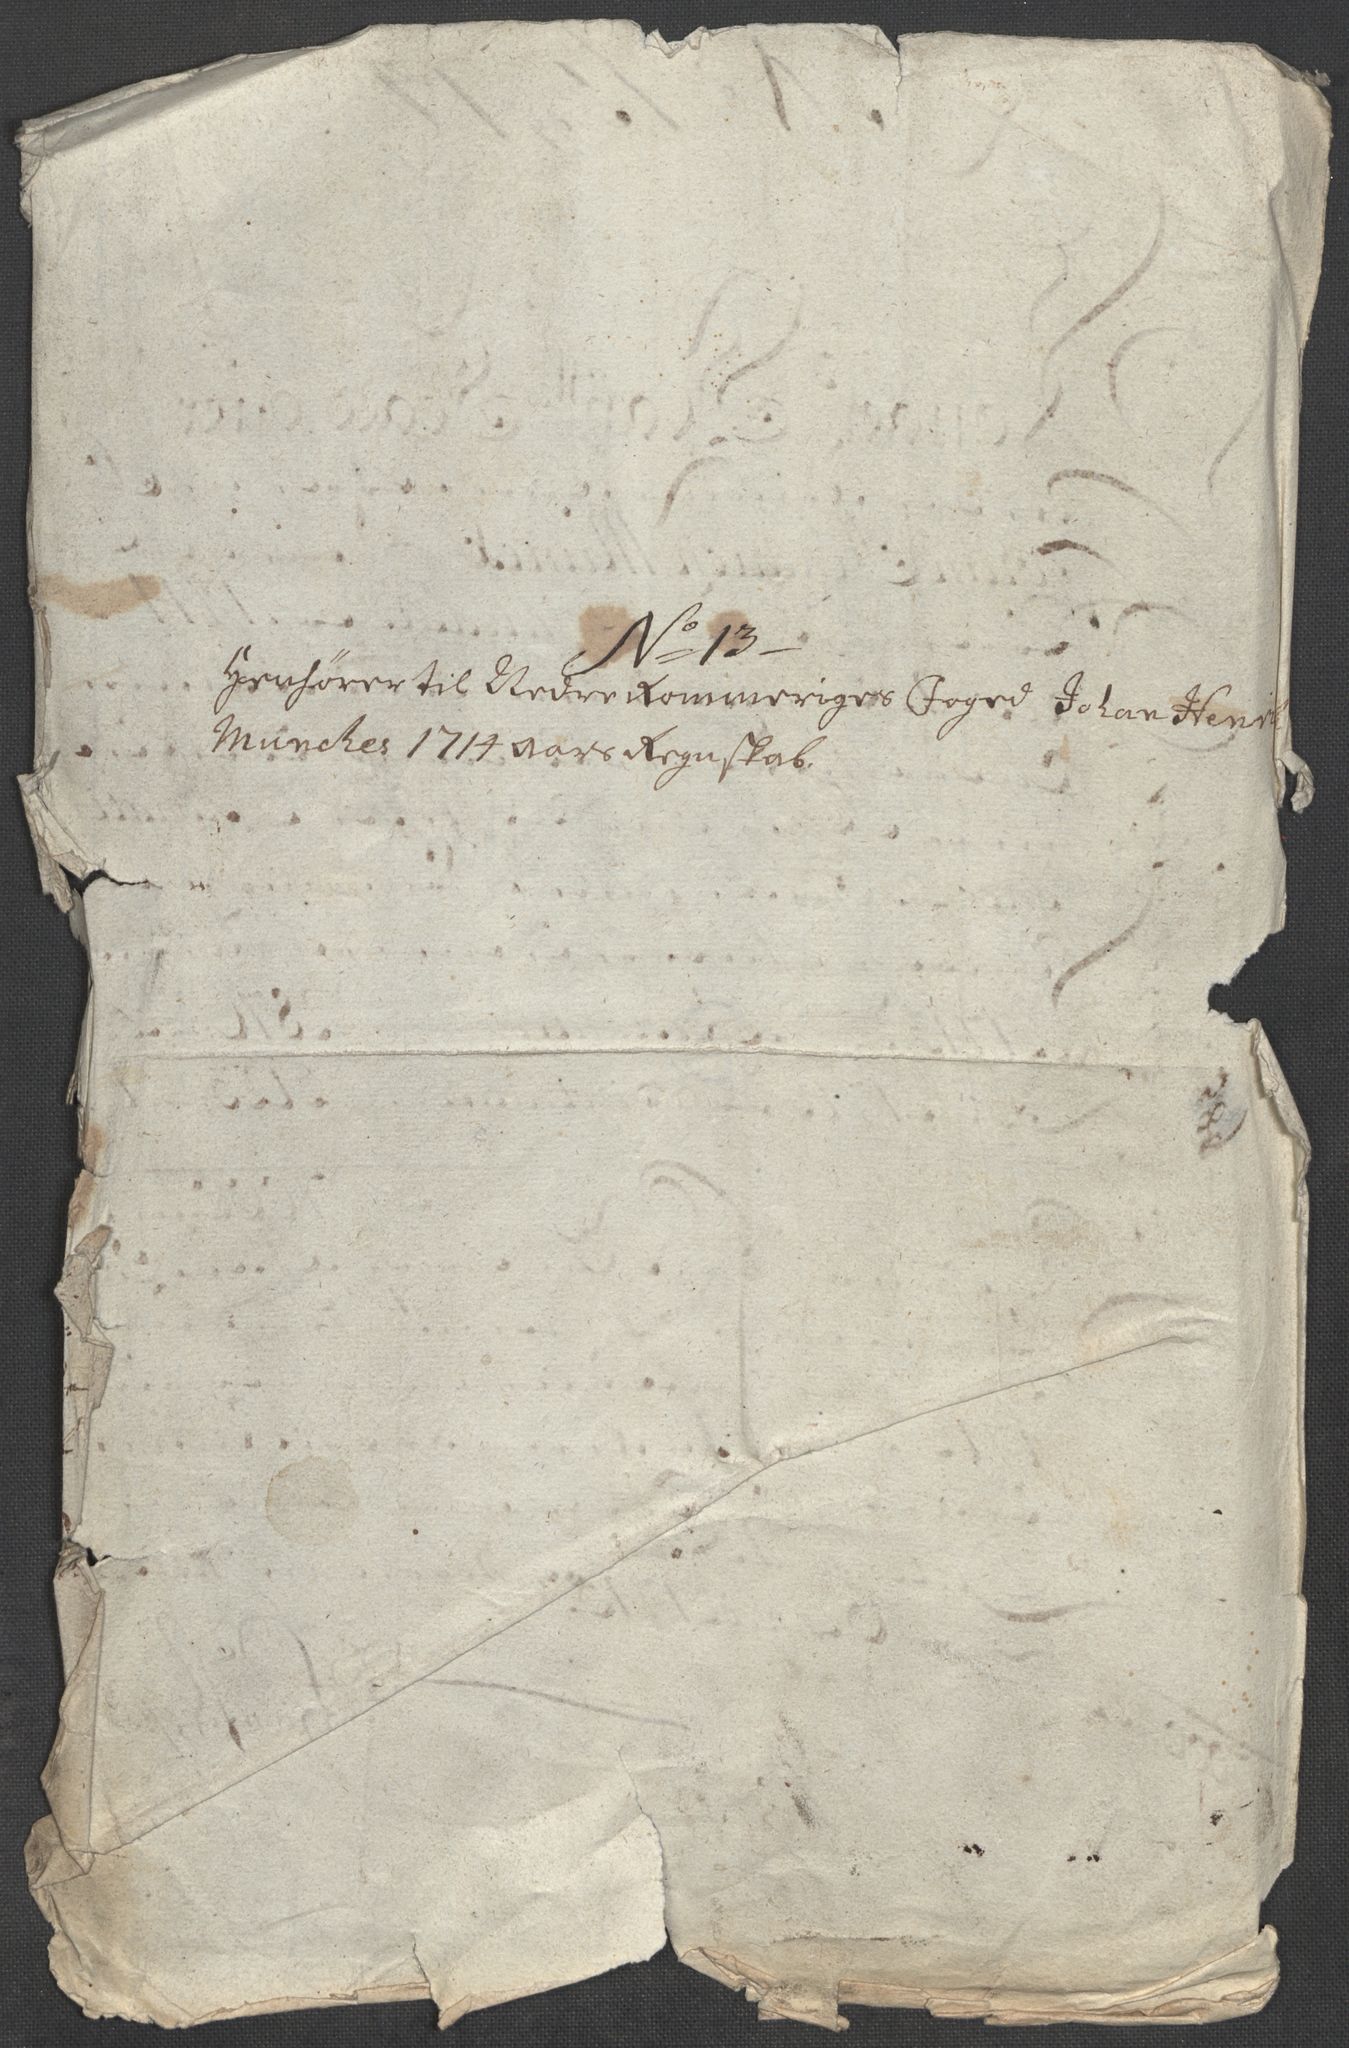 No 13
Henhörer til Nedre Rommeriges Foged Johan Henrik
Munches 1714 aars Regnskab.